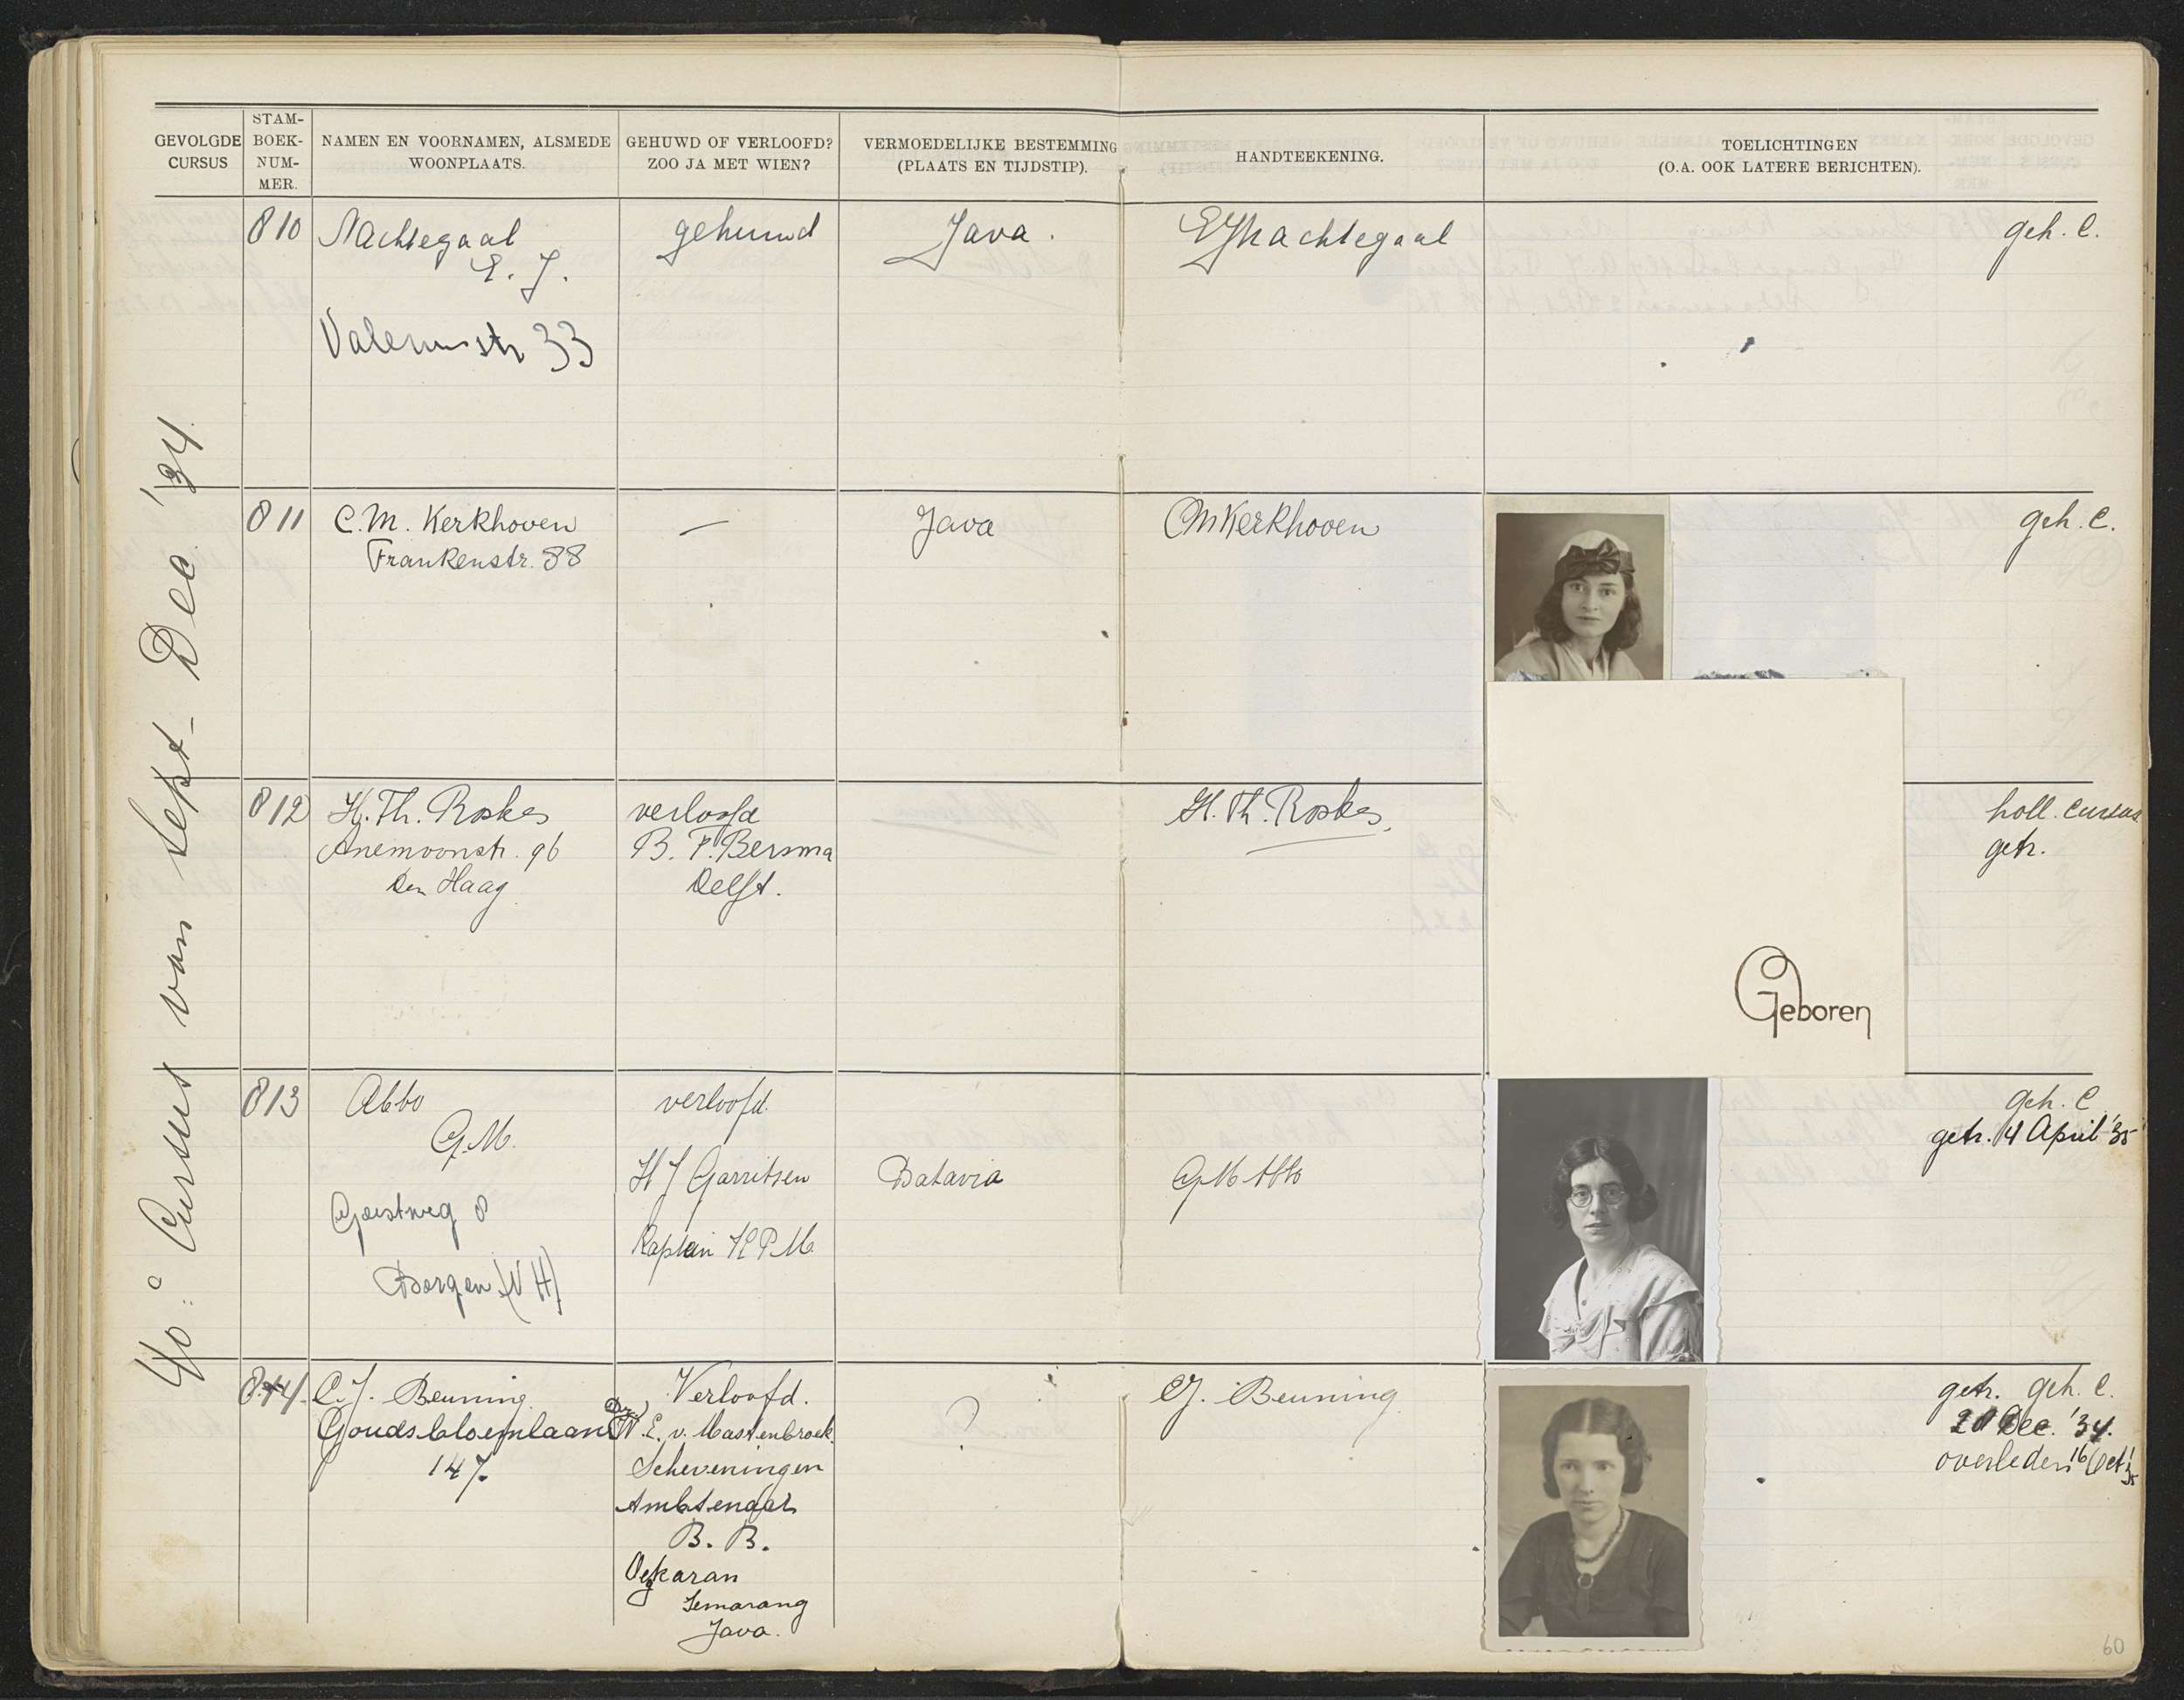 GEVOLGDE CURSUS
STAM-BOEK-NUM-MER.
NAMEN EN VOORNAMEN, ALSMEDE WOONPLAATS.
GEHUWD OF VERLOOFD? ZOO JA MET WIEN?
VERMOEDELIJKE BESTEMMING (PLAATS EN TIJDSTIP).
HANDTEEKENING.
TOELICHTINGEN
(O.A. OOK LATERE BERICHTEN).
40e Cursus van Sept - Dec. '34.
810
Nachtegaal
E. J.
33
gehuwd
Java.
EJNachtegaal
geh. C.
811
C.M. Kerkhoven
Frankenstr. 88
—
Java
CMKerkhoven
geh. C.
812
H. Th. Roskes
Anemoonstr. 96
Den Haag
verloofd
B. F. Bersma
Delft.
H. Th. Roskes.
holl. cursus
getr.
Geboren
813
Abbo
G.M.
Geestweg 8
Bergen (N H)
verloofd.
H J Garritsen
Kaptein K P M
Batavia
GM Abbo
geh. C
getr. 4 April '35
814.
C. J. Beuning
Goudsbloemlaan
147.
Verloofd.
W. E. v. Mastenbroek.
Scheveningen
Ambtenaar
B. B.
Semarang
Java.
?
CJ. Beuning.
getr. geh. C.
Dec. '34.
overleden 16 Oct '35
60